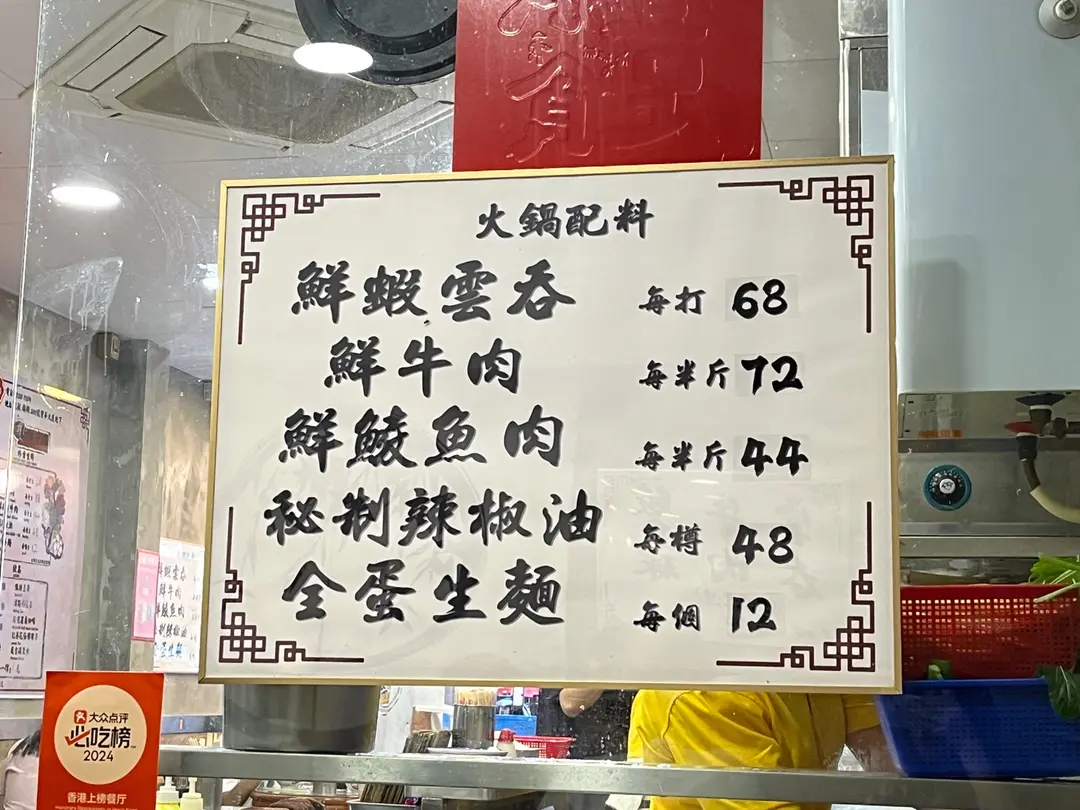 火鍋配料
鮮蝦雲吞 每打 68
鮮牛肉 每半斤 72
鮮鯪魚肉 每半斤 44
秘制辣椒油 每樽 48
全蛋生麵 每個 12
大众点评
必吃榜
2024
香港上榜餐厅